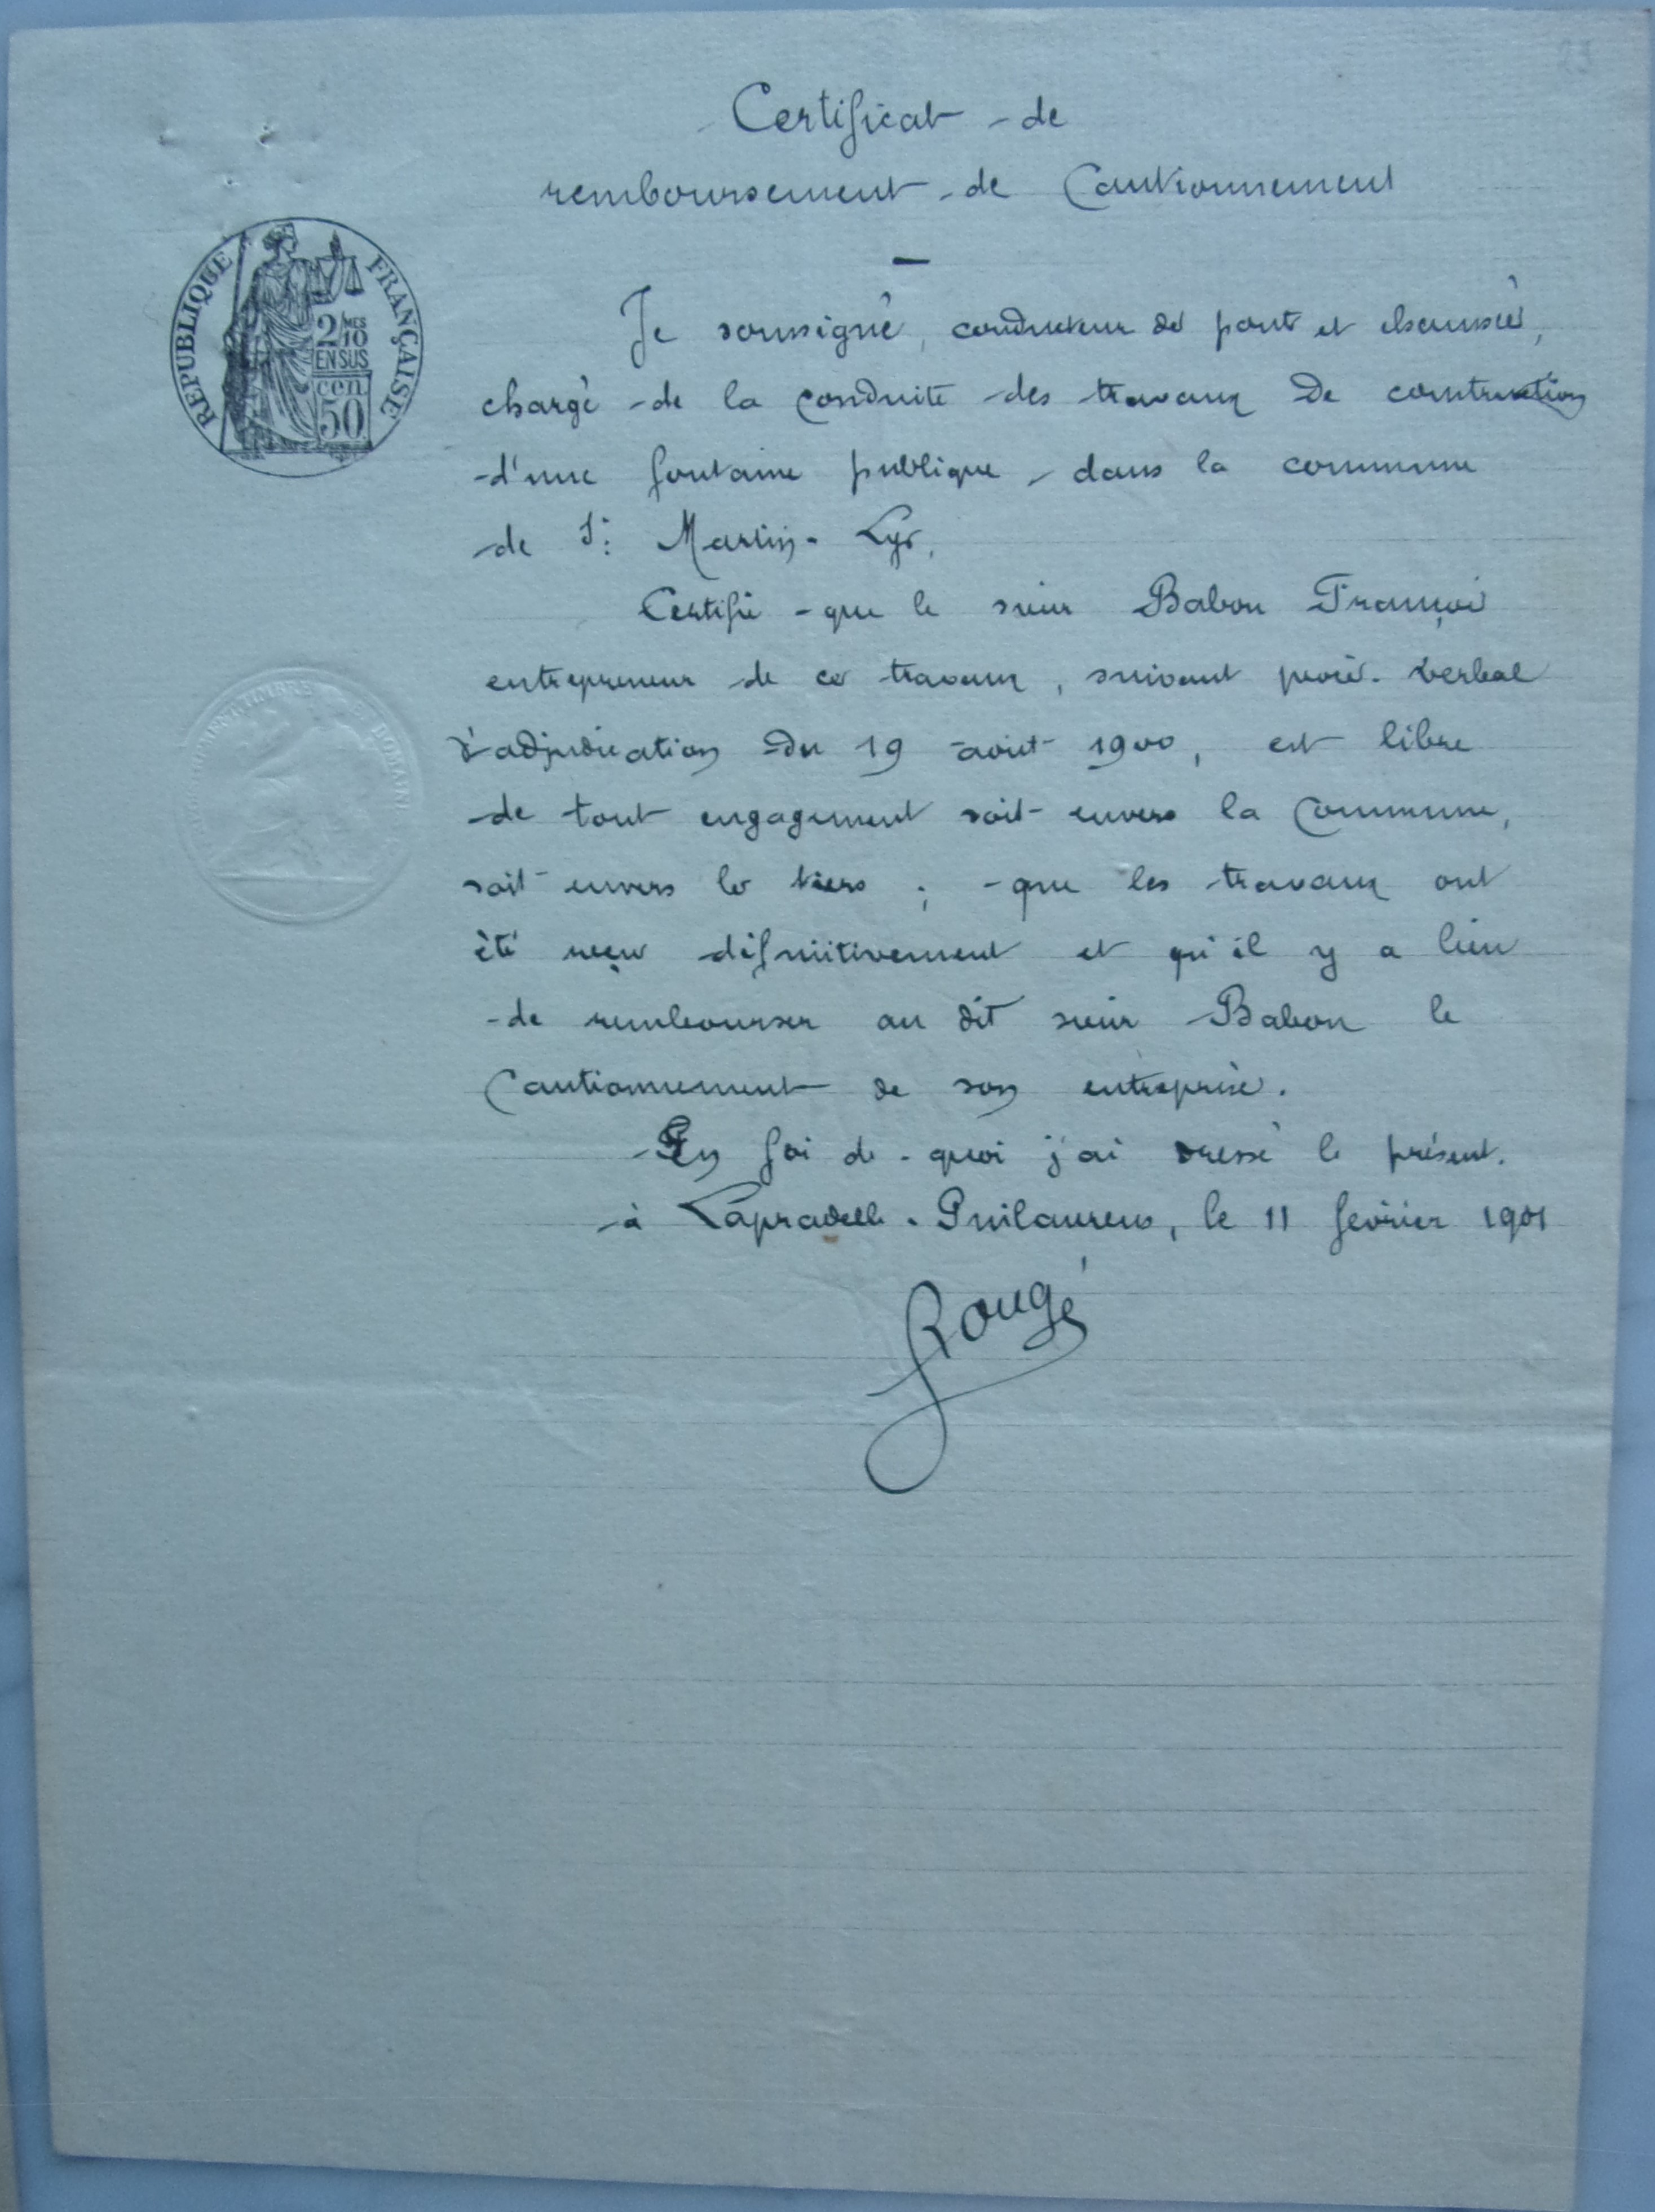 Certificat de
remboursement de Cautionnement
Je soussigné, conducteur des ponts et chaussées,
chargé de la conduite des travaux de construction
d'une fontaine publique, dans la commune
de St Martin-Lys,
Certifie que le sieur Babou François
entrepreneur de ces travaux, suivant procès-verbal
d'adjudication du 19 août 1900, est libre
de tout engagement soit envers la Commune,
soit envers les tiers ; que les travaux ont
été reçus définitivement et qu'il y a lieu
de rembourser au dit sieur Babou le
Cautionnement de son entreprise.
En foi de quoi j'ai dressé le présent.
à Lapradelle-Puilaurens, le 11 février 1901
Rougé
REPUBLIQUE FRANÇAISE
2/10 MES
EN SUS
cen
50
TIMBRE
DOMAINE